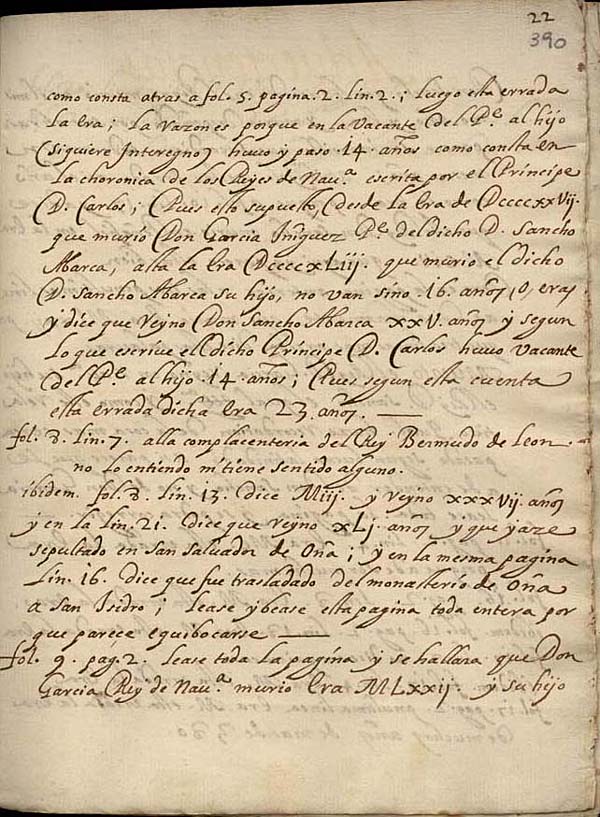 22
390
como consta atras a fol. 5. pagina. 2. lin. 2.; luego esta errada
la era; la razon es porque en la vacante del Pe. al hijo
(siquiere Interegno) huuo y paso 14. años como consta en
la choronica de los Reyes de Naua. escrita por el Principe
D. Carlos; Pues esto supuesto, desde la Era de DccccxxVij.
que murio Don Garcia Iñiguez Pe. del dicho D. Sancho
Abarca, asta la Era DccccxLiij. que murio el dicho
D. Sancho Abarca su hijo, no van sino .16. años, o, eras
y dice que Reyno Don Sancho Abarca xxV. años y segun
lo que escriue el dicho Principe D. Carlos huuo Vacante
del Pe. al hijo .14. años; Pues segun esta cuenta
esta errada dicha Era 23. años.
fol. 8. lin. 7. alla complacenteria del Rey Bermudo de Leon.
no lo entiendo ni tiene sentido alguno.
ibidem. fol. 8. lin. 13. Dice Miij. y reyno xxxVij. años
y en la lin. 21. dice que reyno xLj. años y que yaze
sepultado en San Saluador de Oña; y en la mesma pagina
lin. 16. Dice que fue trasladado del monasterio de Oña
a San Isidro; lease y bease esta pagina toda entera por
que parece equibocarse
fol. 9. pag. 2. lease toda la pagina y se hallara que Don
Garcia Rey de Naua. murio Era MLxxij. y su hijo